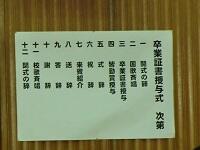 卒業証書授与式　次第
一　開式の辞
二　国歌斉唱
三　卒業証書授与
四　皆勤賞授与
五　式辞
六　祝辞
七　来賓紹介
八　送辞
九　答辞
十　謝辞
十一　校歌斉唱
十二　閉式の辞